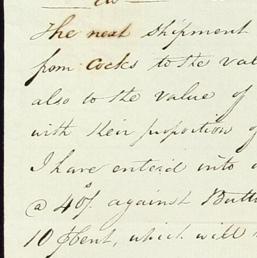 The next shipment
from Cocks to the val
also to the value of
with their proportion of
I have entered into a
@ 40/. against Butt
10 ⅌Cent, which will